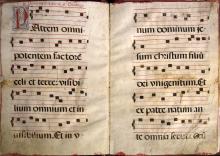 PAtrem omni
potentem factorē
celi et terre: visibi
lium omnium et in
visibilium. Et in v
num dominum je
sum christum filiū
dei unigenitum. Et
ex patre natum an
te omnia secula. deū